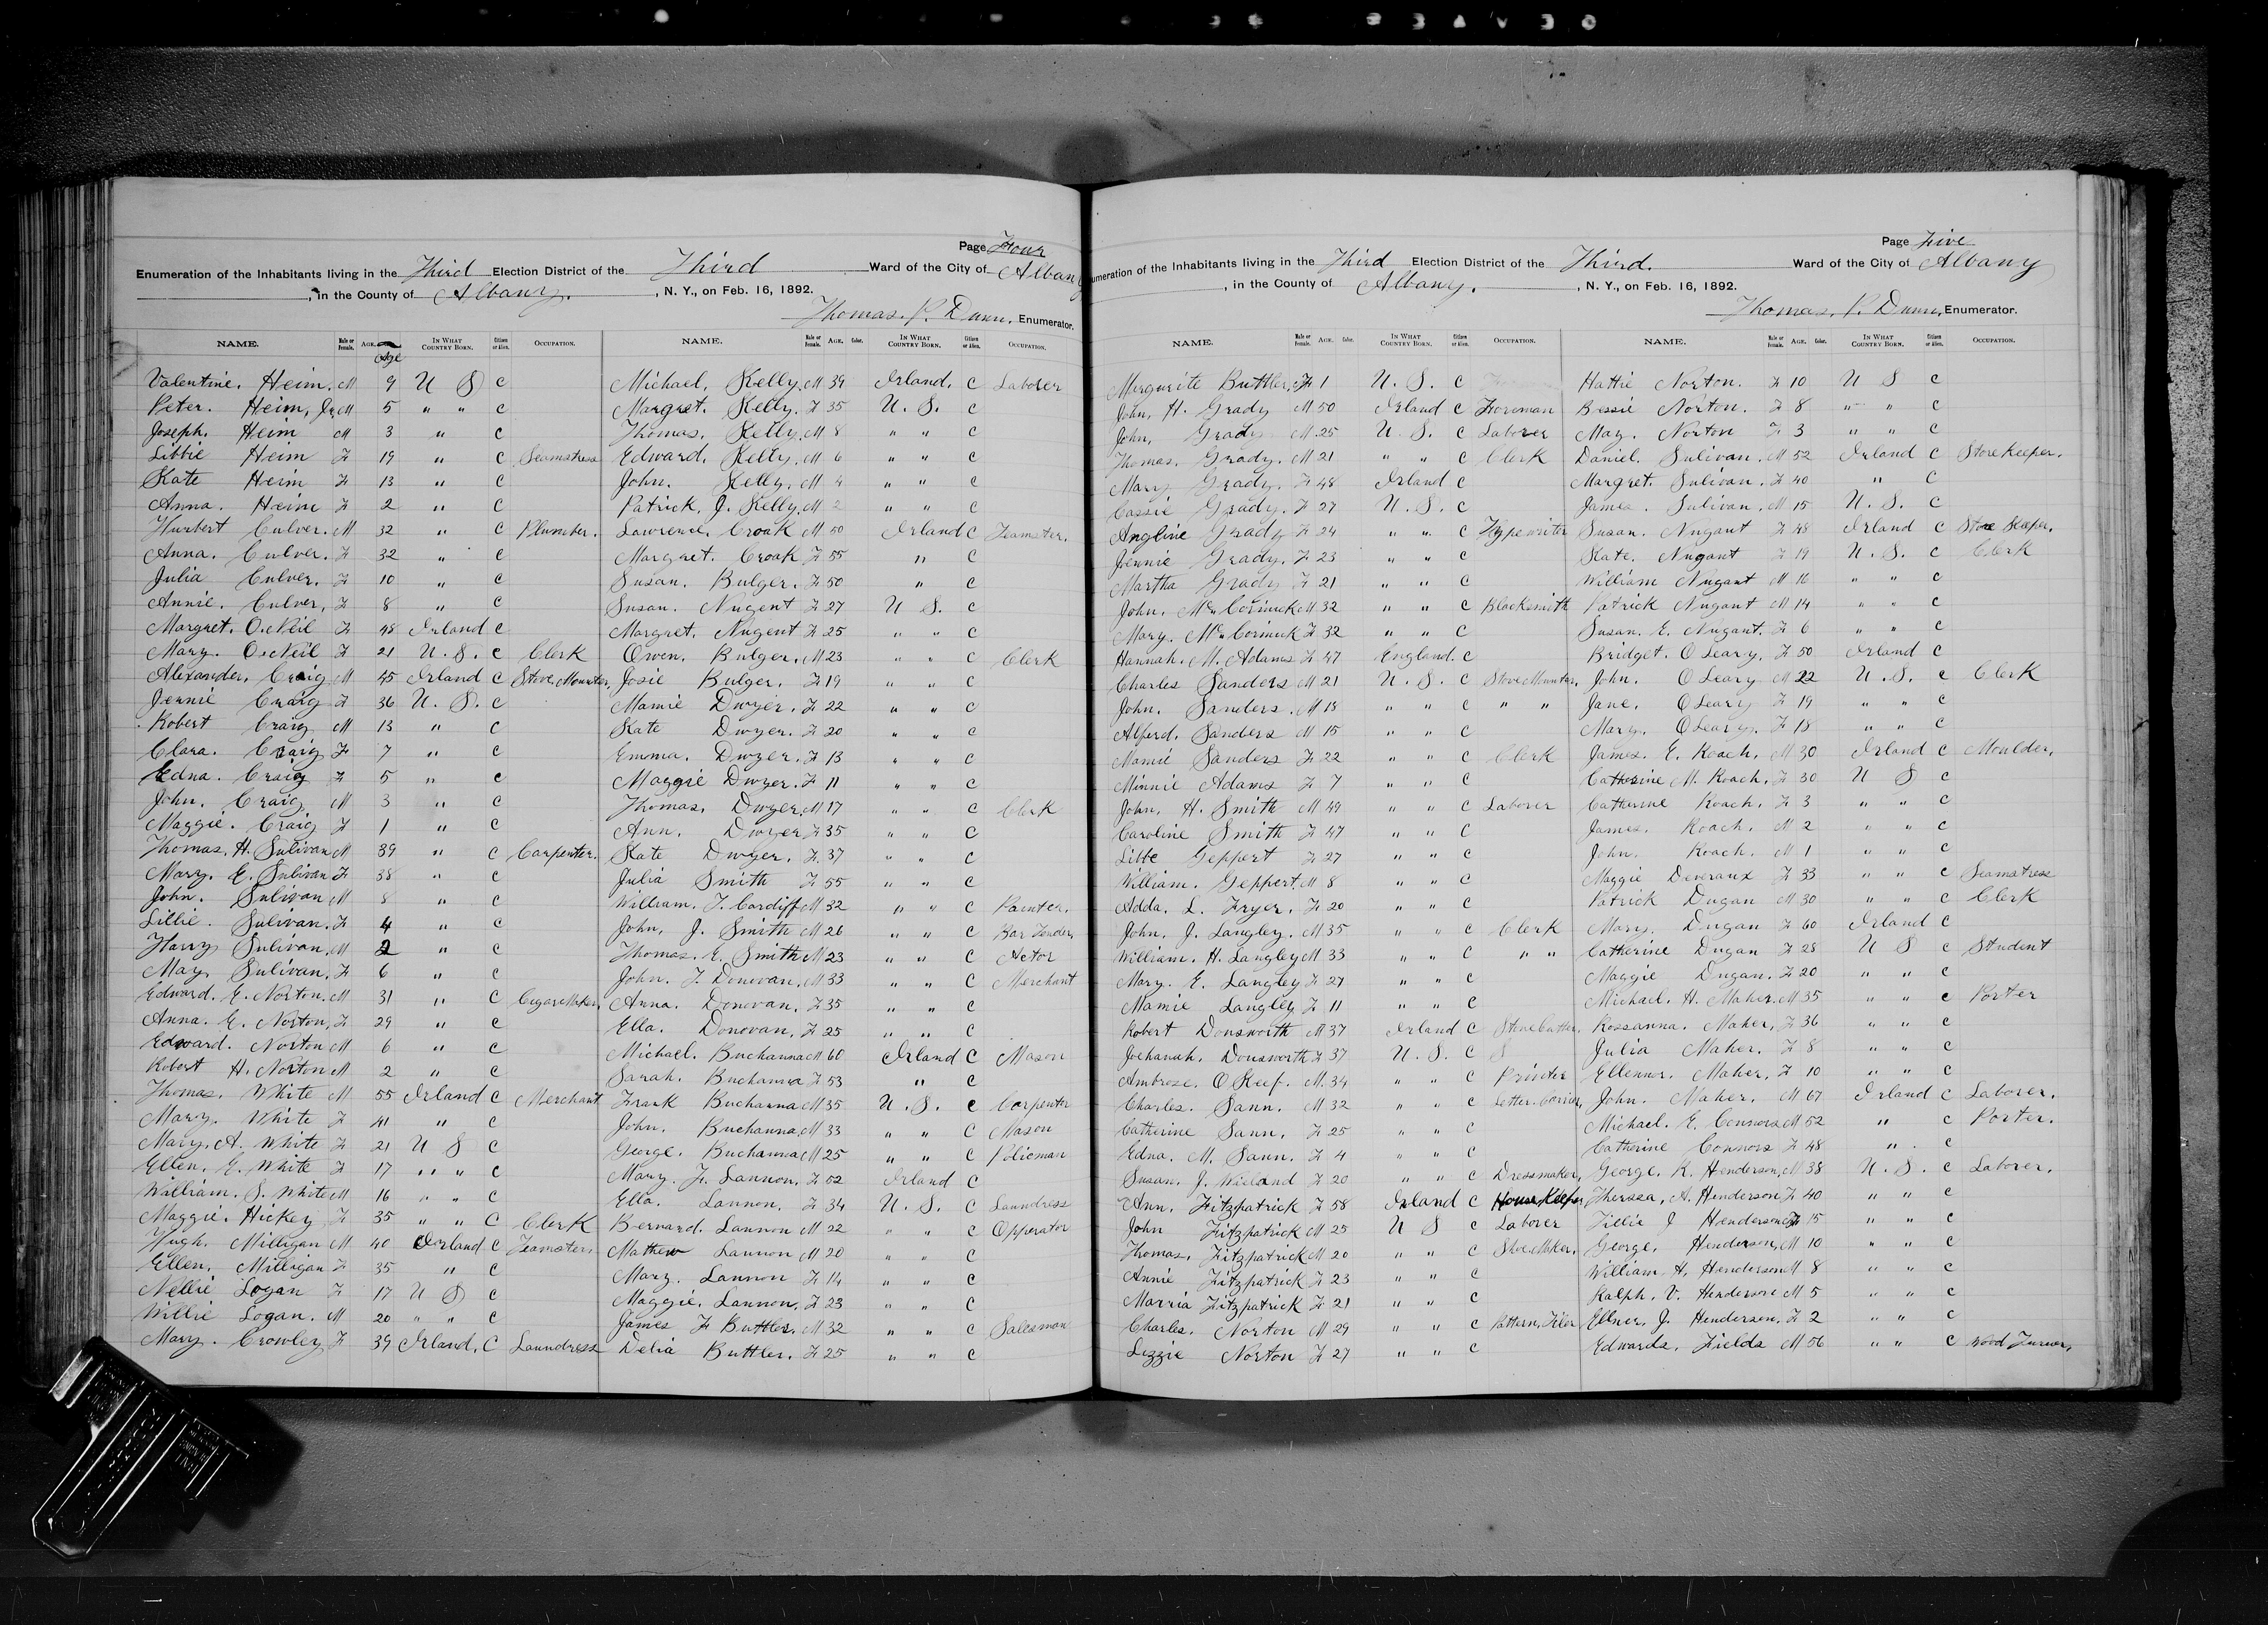 Page Four
Enumeration of the Inhabitants living in the Third Election District of the Third Ward of the City of Albany
, in the County of Albany. , N. Y., on Feb. 16, 1892.
Thomas. P. Dunn, Enumerator.
NAME. Male or Female. AGE. Age IN WHAT COUNTRY BORN. Citizen or Alien. OCCUPATION.
Valentine. Heim. M 9 U S C
Peter. Heim, Jr. M 5 " " C
Joseph. Heim M 3 " C
Libbie Heim F 19 " C Seamstress
Kate Heim F 13 " C
Anna. Heim F 2 " C
Hurbert Culver. M 32 " C Plumber.
Anna. Culver. F 32 " C
Julia Culver. F 10 " C
Annie. Culver. F 8 " C
Margret. O.Neil F 48 Irland C
Mary. O.Neil F 21 U. S. C Clerk
Alexander. Craig M 45 Irland C Stove Mounter,
Jennie Craig F 36 U. S. C
Robert Craig M 13 " C
Clara. Craig F 7 " C
Edna. Craig F 5 " C
John. Craig M 3 " C
Maggie. Craig F 1 " C
Thomas. H. Sulivan M 39 " C Carpenter.
Mary. E. Sulivan F 38 " C
John. Sulivan M 8 " C
Lillie. Sulivan. F 4 " C
Harry Sulivan. M 2 " C
May Sulivan. F 6 " C
Edward. E. Norton. M 31 " C Cigar Maker,
Anna. E. Norton, F 29 " C
Edward. Norton M 6 " C
Robert H. Norton M 2 " C
Thomas. White M 55 Irland C Merchant
Mary. White F 41 " C
Mary. A. White F 21 U S C
Ellen. E. White F 17 " " C
William. S. White M 16 " " C
Maggie. Hickey F 35 " " C Clerk
Hugh. Milligan M 40 Irland C Teamster.
Ellen. Milligan F 35 " C
Nellie Logan F 17 U S C
Willie Logan. M 20 " " C
Mary. Crowley F 39 Irland. C Laundress
NAME. Male or Female. AGE. Color. IN WHAT COUNTRY BORN. Citizen or Alien. OCCUPATION.
Michael. Kelly. M 39 Irland. C Laborer
Margret. Kelly. F 35 U. S. C
Thomas. Kelly. M 8 " " C
Edward. Kelly. M 6 " " C
John. Kelly. M 4 " " C
Patrick. J. Kelly. M 2 " " C
Lawrence. Croak M 50 Irland C Teamster.
Margret. Croak F 55 " C
Susan. Bulger. F 50 " C
Susan. Nugent F 27 U S. C
Margret. Nugent F 25 " " C
Owen. Bulger. M 23 " " C Clerk
Josie Bulger. F 19 " " C
Mamie Dwyer. F 22 " " C
Kate Dwyer. F 20 " " C
Emma. Dwyer. F 13 " " C
Maggie Dwyer. F 11 " " C
Thomas. Dwyer. M 17 " " C Clerk
Ann. Dwyer F 35 " " C
Kate Dwyer. F 37 " " C
Julia Smith F 55 " " C
William. T. Cardiff M 32 " " C Painter.
John. J. Smith M 26 " " C Bar Tender,
Thomas. E. Smith M 23 " " C Actor
John. T. Donovan. M 33 " " C Merchant
Anna. Donovan. F 35 " " C
Ella. Donovan. F 25 " " C
Michael. Buchanna M 60 Irland C Mason
Sarah. Buchanna F 53 " C
Frank Buchanna M 35 U. S. C Carpenter
John. Buchanna M 33 " " C Mason
George. Buchanna M 25 " " C Policman
Mary. F. Lannon. F 52 Irland C
Ella. Lannon. F 34 U. S. C Laundress
Bernard. Lannon M 22 " " C Opperator
Mathew Lannon M 20 " " C
Mary. Lannon F 14 " " C
Maggie. Lannon. F 23 " " C
James F Buttler. M 32 " " C Salesman
Delia Buttler. F 25 " " C
Page Five
umeration of the Inhabitants living in the Third Election District of the Third. Ward of the City of Albany
, in the County of Albany. , N. Y., on Feb. 16, 1892.
Thomas. P. Dunn, Enumerator.
NAME. Male or Female. AGE. Color. IN WHAT COUNTRY BORN. Citizen or Alien. OCCUPATION.
Margurite Buttler. F 1 U. S. C
John. H. Grady M 50 Irland C Foreman
John. Grady M 25 U. S. C Laborer
Thomas. Grady. M 21 " " C Clerk
Mary Grady. F 48 Irland C
Cassie Grady. F 27 U. S. C
Angline Grady F 24 " " C Typewriter
Jennie Grady. F 23 " " C
Martha Grady F 21 " " C
John. Mc Cormick M 32 " " C Blacksmith
Mary. Mc Cormick F 32 " " C
Hannah. M. Adams F 47 England. C
Charles Sanders M 21 U. S. C Stove Mounter.
John. Sanders. M 18 " " C " "
Alferd. Sanders M 15 " " C
Mamie Sanders F 22 " " C Clerk
Minnie Adams F 7 " " C
John. H. Smith M 49 " " C Laborer
Caroline Smith F 47 " " C
Libbe Geppert F 27 " " C
William. Geppert. M 8 " " C
Adda. L. Fryer. F 20 " " C
John. J. Langley. M 35 " " C Clerk
William. H. Langley M 33 " " C " "
Mary. E. Langley F 27 " " C
Mamie Langley F 11 " " C
Robert Donsworth M 37 Irland C Stone Cutter,
Johanah. Donsworth F 37 U. S. C S
Ambrose. O Keef. M. 34 " " C Printer
Charles. Sann. M 32 " " C Letter. Carrier,
Catherine Sann. F 25 " " C
Edna. M. Sann. F 4 " " C
Susan. J. Wieland F 20 " " C Dressmaker,
Ann. Fitzpatrick F 58 Irland C House Keeper
John Fitzpatrick M 25 U S C Laborer
Thomas. Fitzpatrick M 20 " " C Shoe Maker.
Annie Fitzpatrick F 23 " " C
Marria Fitzpatrick F 21 " " C
Charles. Norton M 29 " " C Pattern. Filer
Lizzie Norton F 27 " " C
NAME. Male or Female. AGE. Color. IN WHAT COUNTRY BORN. Citizen or Alien. OCCUPATION.
Hattie Norton. F 10 U S C
Bessie Norton. F 8 " " C
May. Norton F 3 " " C
Daniel. Sulivan. M 52 Irland C Store Keeper.
Margret. Sulivan. F 40 " C
James. Sulivan. M 15 U. S. C
Susan. Nugant F 48 Irland C Store Keeper.
Kate. Nugant F 19 U. S. C Clerk
William Nugant M 16 " " C
Patrick Nugant M 14 " " C
Susan. E. Nugant. F 6 " " C
Bridget. O Leary. F 50 Irland C
John. O Leary M 22 U. S. C Clerk
Jane. O Leary F 19 " " C
Mary. O Leary. F 18 " " C
James. E. Roach. M 30 Irland C Moulder.
Catherine M. Roach. F 30 U S C
Catherine Roach. F 3 " " C
James. Roach. M 2 " " C
John. Roach. M 1 " " C
Maggie Deveraux F 33 " " C Seamstress
Patrick Dugan M 30 " " C Clerk
Mary. Dugan F 60 Irland C
Catherine Dugan F 28 U S C Student
Maggie Dugan. F 20 " " C
Michael. H. Maher. M 35 " " C Porter
Rossanna. Maher, F 36 " " C
Julia Maher. F 8 " " C
Ellennor. Maher. F 10 " " C
John. Maher. M 67 Irland C Laborer.
Michael. E. Connors M 52 " C Porter.
Catherine Connors F 48 " C
George. R. Henderson, M 38 U. S. C Laborer.
Thersea, A. Henderson F 40 " " C
Tillie J Henderson F 15 " " C
George. Henderson, M 10 " " C
William H. Henderson M 8 " " C
Ralph. V. Henderson M 5 " " C
Ellner. J. Henderson, F 2 " " C
Edwards. Fields M 56 " " C Wood Turner,